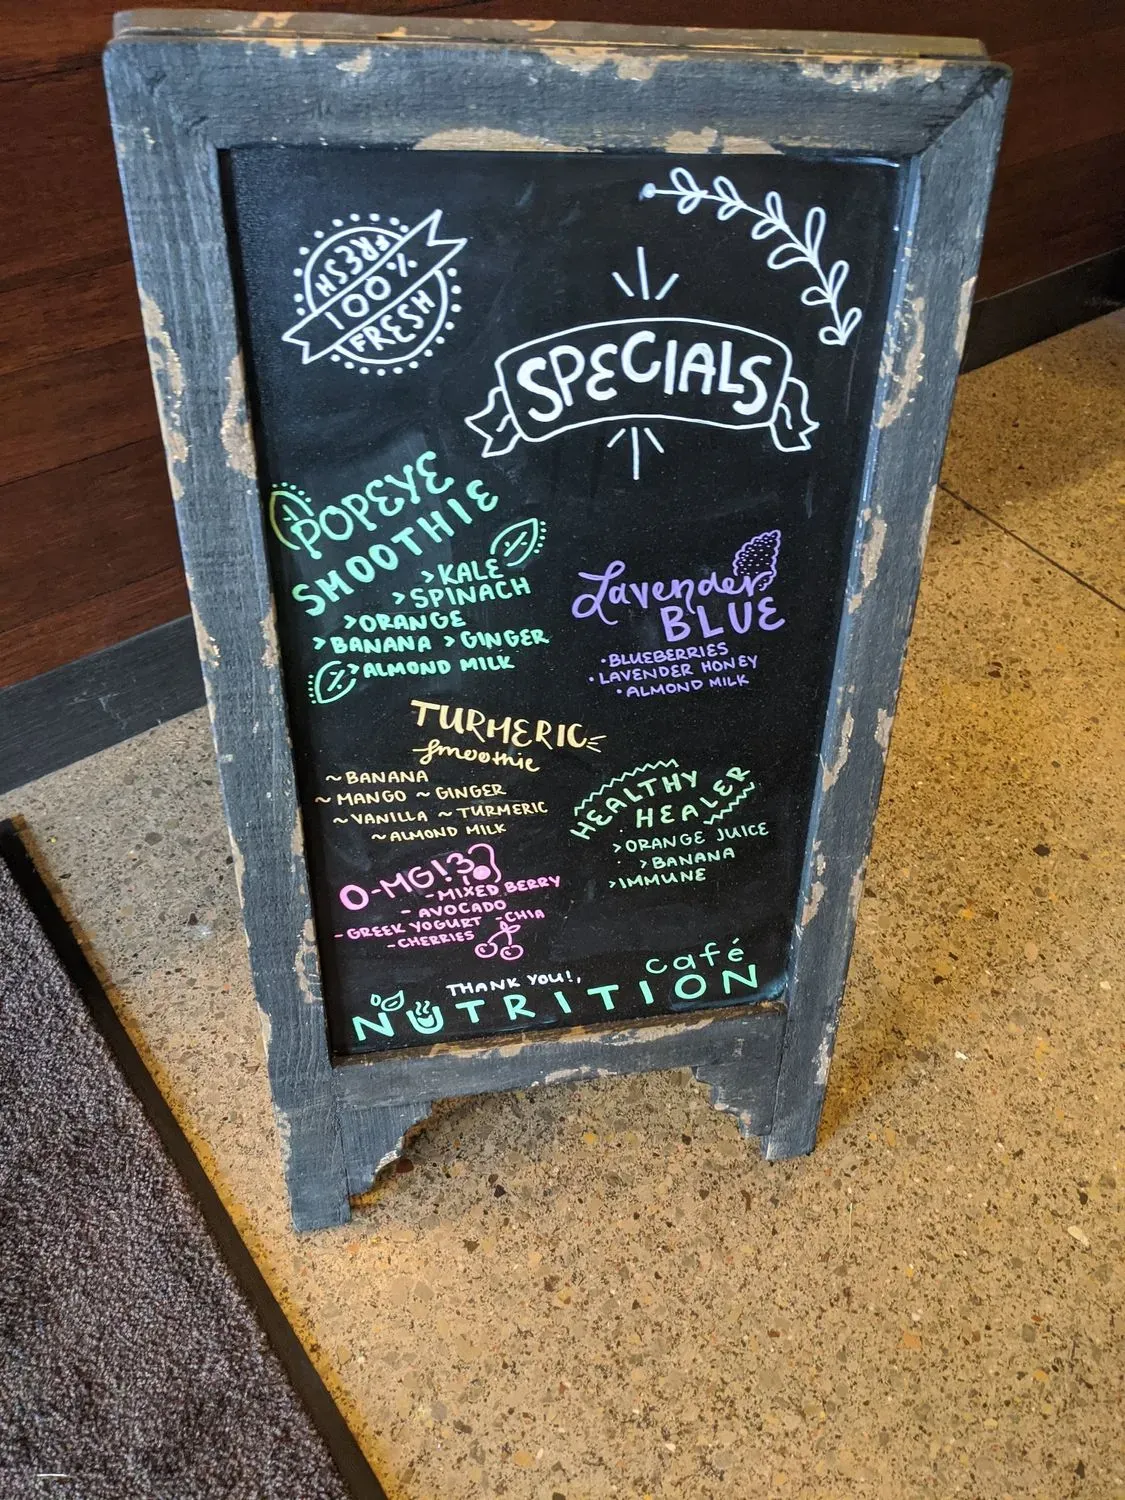 FRESH
100%
FRESH
SPECIALS
POPEYE
SMOOTHIE
>KALE
>SPINACH
>ORANGE
>BANANA >GINGER
>ALMOND MILK
Lavender
BLUE
•BLUEBERRIES
•LAVENDER HONEY
•ALMOND MILK
TURMERIC
smoothie
~BANANA
~MANGO ~GINGER
~VANILLA ~TURMERIC
~ALMOND MILK
HEALTHY
HEALER
>ORANGE JUICE
>BANANA
>IMMUNE
O-MG!3
-MIXED BERRY
-AVOCADO
-GREEK YOGURT -CHIA
-CHERRIES
THANK YOU!,
café
NUTRITION